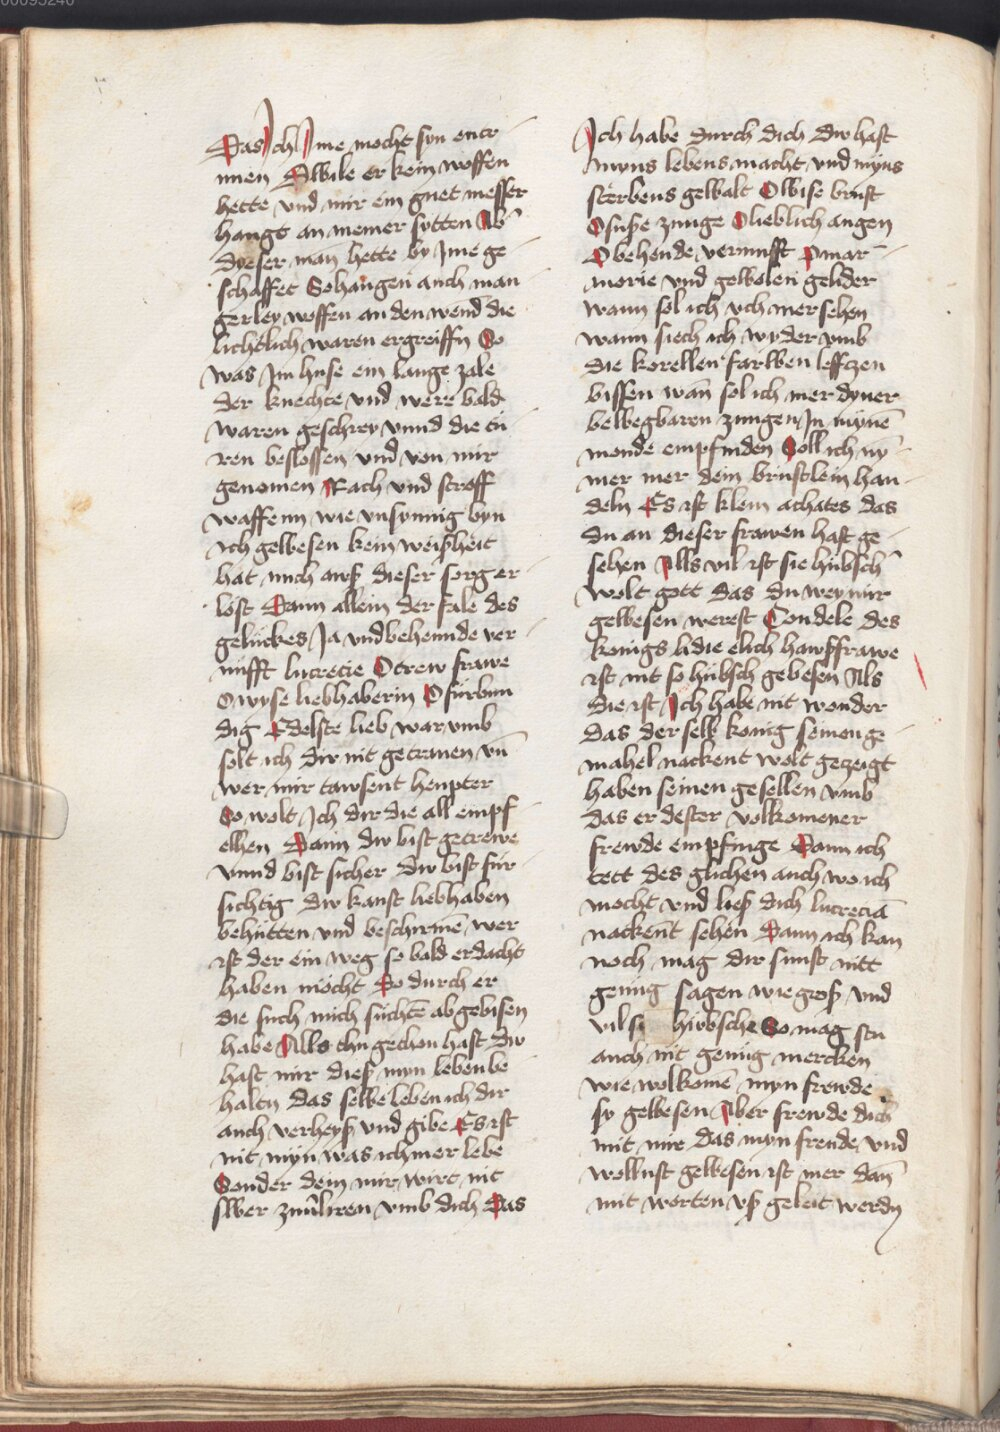 Das Ich Ime mocht syn entr
nnen Alwile er kein woffen
hette vnd mir ein guet messer
hangt an meiner sytten Ab
dyeser man hette by Ime ge
schaffet So hangen auch man
gerley woffen an den wend die
lichtlich waren ergreiffn So
was Im huse ein lange zale
der knechte vnd were bald
waren geschrey vnnd die tü
ren beslossen vnd von mir
genomen Rach vnd stroff
waffenn wie vnsynnig byn
ich gewesen kein weißheit
hat mich awß dieser sorg er
löst Dann allein der fale des
gelückes Ja vnd behennde ver
nüfft lucrecie O trew frawe
O wyse liebhaberin O fürbun
dig Edelste lieb war vmb
solt ich dir nit getrawen vn̄
wer mir tawsent heupter
So wolt Ich dir die all empf
elhen Dann dw bist getrewe
vnnd bist sicher dw bist für
sichtig dw kanst liebhaben
behütten vnd beschirmē wer
ist der ein weg so bald erdacht
haben möcht Do durch er
die such mich süchtē abgebisen
habe Alls thu gethon hast dw
hast mir dieß myn leben be
haltn das selbe leben ich dir
auch verheyß vnd gibe Es ist
nit myn was ich mer lebe
Sonder dem mir wirt nit
swer zuuliren vmb dich Das
Ich habe durch dich dw hast
myns lebens macht vnd myns
sterbens gewalt O wise brust
O suße zunge O lieblich augen
O behende vernufft O mar
morie vnd gewolen gelider
wann sol ich vch mer sehen
wann siech ich wyder vmb
die korellen farwen leffczen
bissen wan̄ sol ich mer dyner
bewegbaren zungen In mynē
monde empfinden Soll ich ny
mer mer dein brüstlein han
deln Es ist klein achates das
du an dieser frawen hast ge
sehen Alls vil ist sie hübsch
wolt gott das du wey mir
gewesen werest Condele des
königs lidie elich hawßfrawe
ist nit so hübsch gewesen Als
die ist Ich habe nit wonder
das der selb konig seinen ge
mahel nackent wolt gezeigt
haben seinen gesellen vmb
das er dester volkomener
frewde empfinge Dann ich
tett des glichen auch wo ich
mocht vnd ließ dich lucreciā
nackent sehen Dann ich kan
noch mag dir sunst nitt
genüg sagen wie groß vnd
vil si hübsche So mag stu
auch nit genüg mercken
wie wolkomē myn frewde
sy gewesen Aber frewde dich
mit mir das myn frende vnd
wollust gewesen ist mer dan̄
mit worten vß geleit werdn